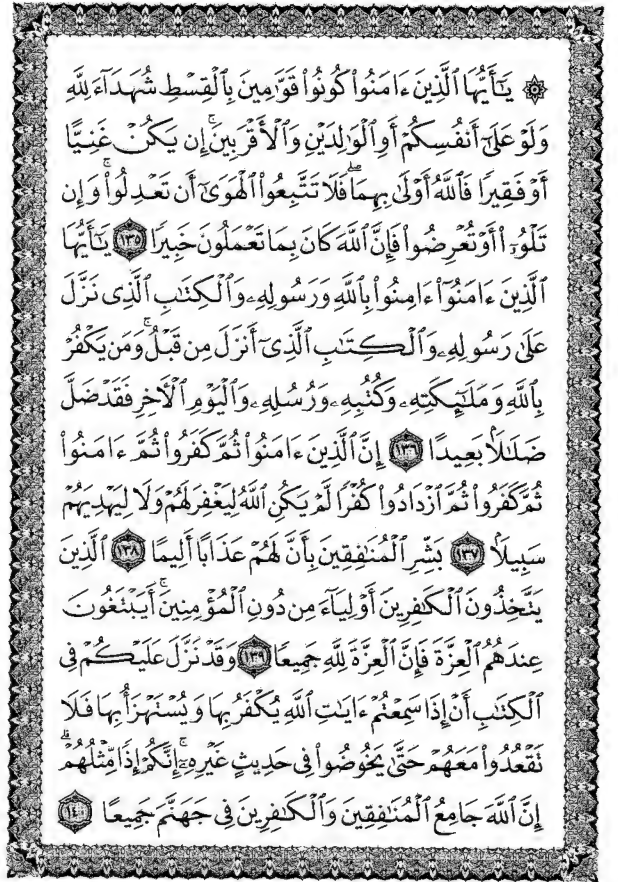 ۞ يَٰٓأَيُّهَا ٱلَّذِينَ ءَامَنُوا۟ كُونُوا۟ قَوَّٰمِينَ بِٱلْقِسْطِ شُهَدَآءَ لِلَّهِ
وَلَوْ عَلَىٰٓ أَنفُسِكُمْ أَوِ ٱلْوَٰلِدَيْنِ وَٱلْأَقْرَبِينَ ۚ إِن يَكُنْ غَنِيًّا
أَوْ فَقِيرًا فَٱللَّهُ أَوْلَىٰ بِهِمَا ۖ فَلَا تَتَّبِعُوا۟ ٱلْهَوَىٰٓ أَن تَعْدِلُوا۟ ۚ وَإِن
تَلْوُۥٓا۟ أَوْ تُعْرِضُوا۟ فَإِنَّ ٱللَّهَ كَانَ بِمَا تَعْمَلُونَ خَبِيرًا ١٣٥ يَٰٓأَيُّهَا
ٱلَّذِينَ ءَامَنُوٓا۟ ءَامِنُوا۟ بِٱللَّهِ وَرَسُولِهِۦ وَٱلْكِتَٰبِ ٱلَّذِى نَزَّلَ
عَلَىٰ رَسُولِهِۦ وَٱلْكِتَٰبِ ٱلَّذِىٓ أَنزَلَ مِن قَبْلُ ۚ وَمَن يَكْفُرْ
بِٱللَّهِ وَمَلَٰٓئِكَتِهِۦ وَكُتُبِهِۦ وَرُسُلِهِۦ وَٱلْيَوْمِ ٱلْأَخِرِ فَقَدْ ضَلَّ
ضَلَٰلًۢا بَعِيدًا ١٣٦ إِنَّ ٱلَّذِينَ ءَامَنُوا۟ ثُمَّ كَفَرُوا۟ ثُمَّ ءَامَنُوا۟
ثُمَّ كَفَرُوا۟ ثُمَّ ٱزْدَادُوا۟ كُفْرًا لَّمْ يَكُنِ ٱللَّهُ لِيَغْفِرَ لَهُمْ وَلَا لِيَهْدِيَهُمْ
سَبِيلًۢا ١٣٧ بَشِّرِ ٱلْمُنَٰفِقِينَ بِأَنَّ لَهُمْ عَذَابًا أَلِيمًا ١٣٨ ٱلَّذِينَ
يَتَّخِذُونَ ٱلْكَٰفِرِينَ أَوْلِيَآءَ مِن دُونِ ٱلْمُؤْمِنِينَ ۚ أَيَبْتَغُونَ
عِندَهُمُ ٱلْعِزَّةَ فَإِنَّ ٱلْعِزَّةَ لِلَّهِ جَمِيعًا ١٣٩ وَقَدْ نَزَّلَ عَلَيْكُمْ فِى
ٱلْكِتَٰبِ أَنْ إِذَا سَمِعْتُمْ ءَايَٰتِ ٱللَّهِ يُكْفَرُ بِهَا وَيُسْتَهْزَأُ بِهَا فَلَا
تَقْعُدُوا۟ مَعَهُمْ حَتَّىٰ يَخُوضُوا۟ فِى حَدِيثٍ غَيْرِهِۦٓ ۚ إِنَّكُمْ إِذًا مِّثْلُهُمْ ۗ
إِنَّ ٱللَّهَ جَامِعُ ٱلْمُنَٰفِقِينَ وَٱلْكَٰفِرِينَ فِى جَهَنَّمَ جَمِيعًا ١٤٠